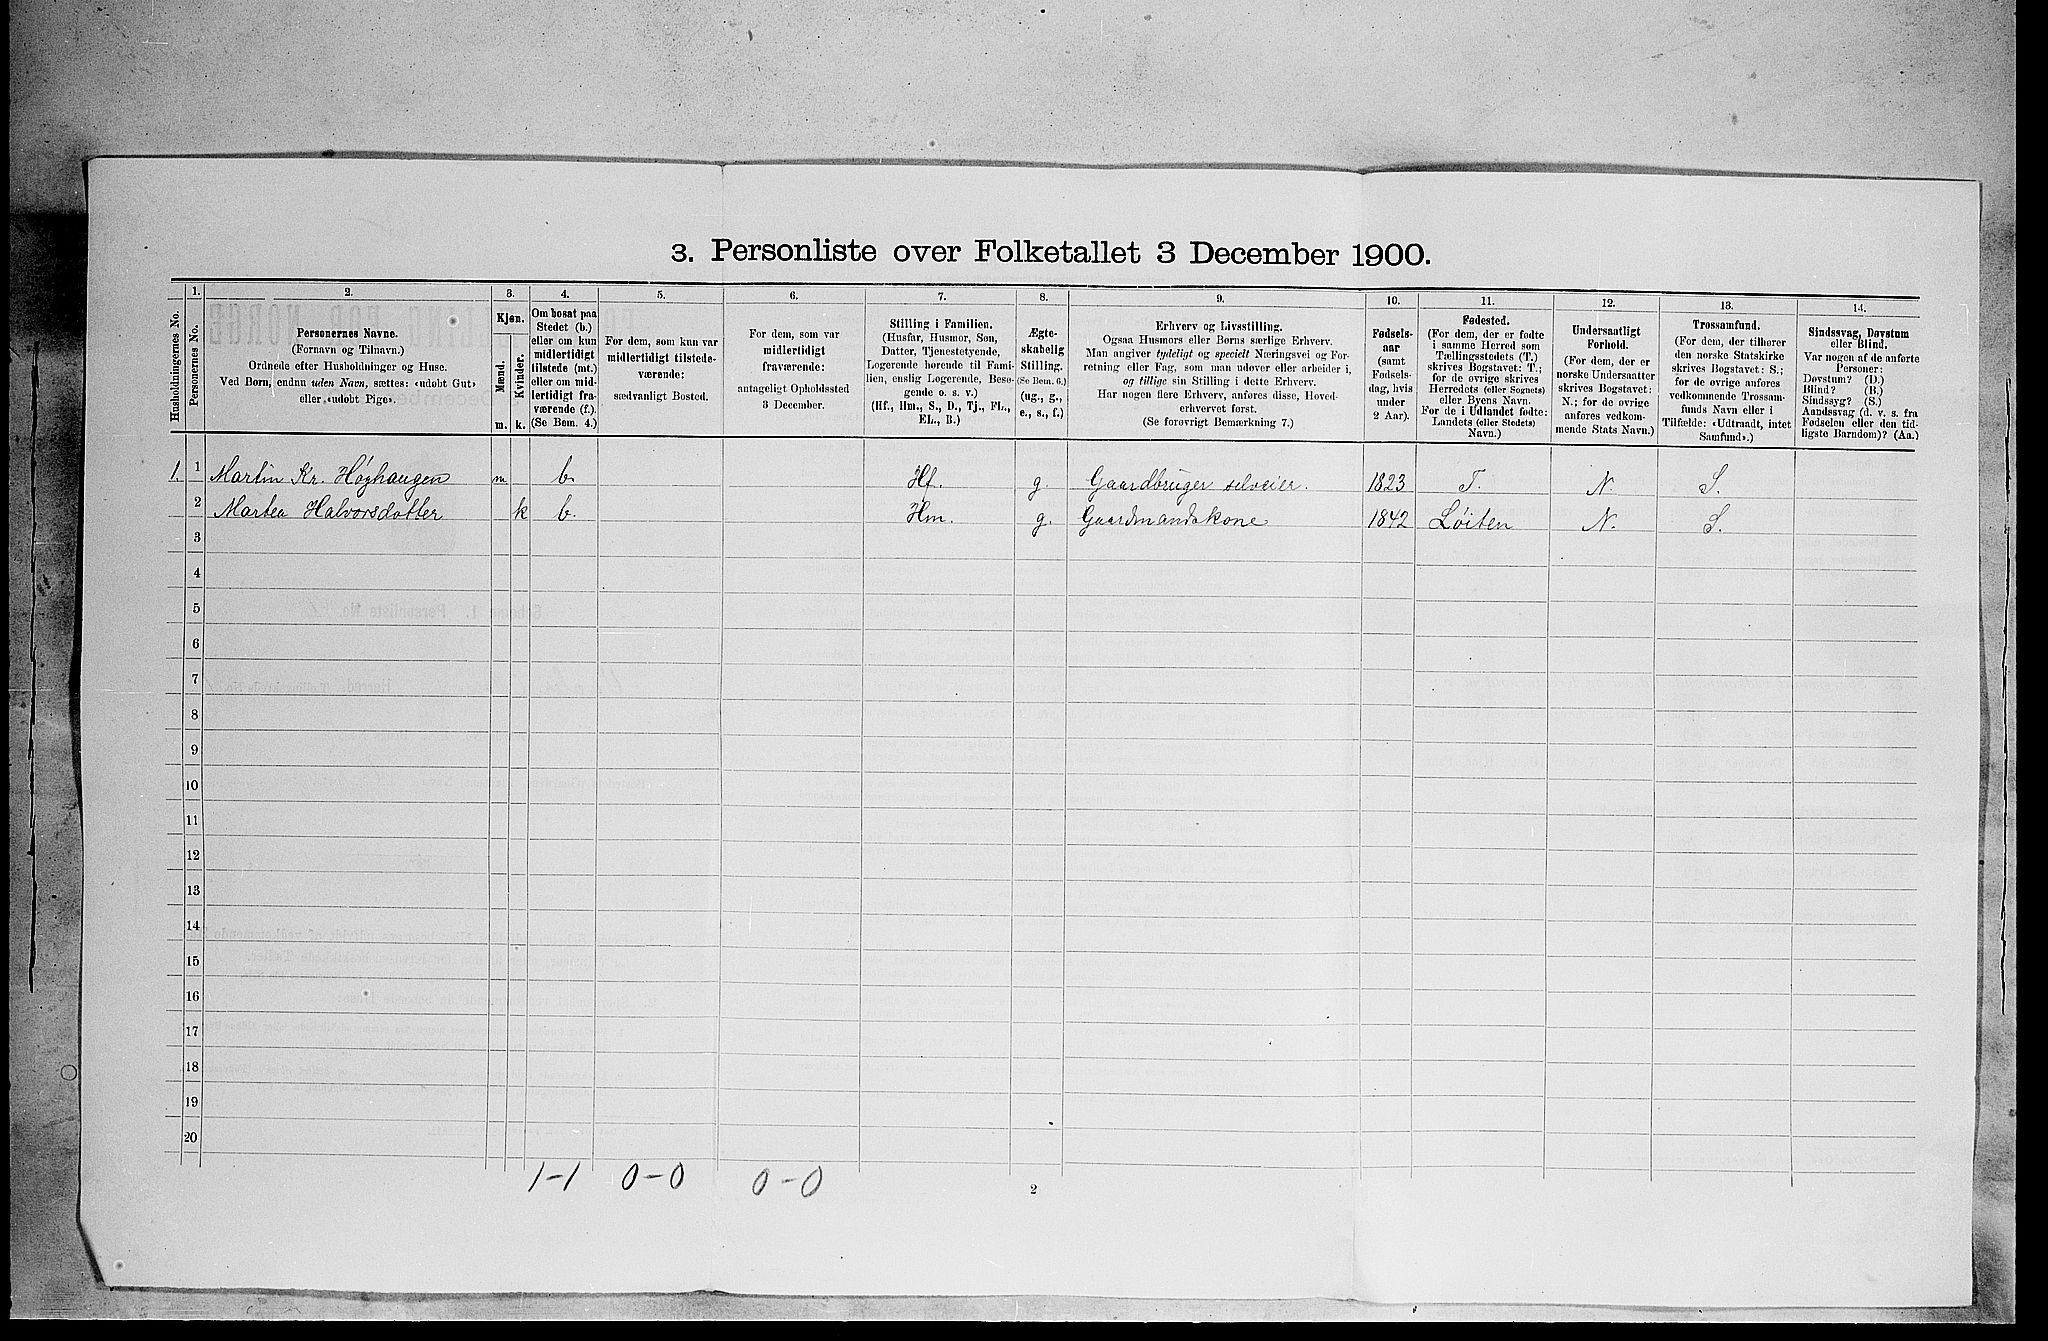 3. Personliste over Folketallet 3 December 1900.
1. 2. 3. 4. 5. 6. 7. 8. 9. 10. 11. 12. 13. 14.
Husholdningernes No.
Personernes No.
Personernes Navne.
(Fornavn og Tilnavn.)
Ordnede efter Husholdninger og Huse.
Ved Børn, endnu uden Navn, sættes: «udøbt Gut»
eller «udøbt Pige».
Kjøn.
Mænd.
Kvinder.
m. k.
Om bosat paa
Stedet (b.)
eller om kun
midlertidigt
tilstede (mt.)
eller om mid-
lertidigt fra-
værende (f.).
(Se Bem. 4.)
For dem, som kun var
midlertidigt tilstede-
værende:
sædvanligt Bosted.
For dem, som var
midlertidigt
fraværende:
antageligt Opholdssted
3 December.
Stilling i Familien.
(Husfar, Husmor, Søn,
Datter, Tjenestetyende,
Logerende hørende til Fami-
lien, enslig Logerende, Besø-
gende o. s. v.)
(Hf., Hm., S., D., Tj., FL.,
EL., B.)
Ægte-
skabelig
Stilling.
(Se Bem. 6.)
(ug., g.,
e., s., f.)
Erhverv og Livsstilling.
Ogsaa Husmors eller Børns særlige Erhverv.
Man angiver tydeligt og specielt Næringsvei og For-
retning eller Fag, som man udøver eller arbeider i,
og tillige sin Stilling i dette Erhverv.
Har nogen flere Erhverv, anføres disse, Hoved-
erhvervet først.
(Se forøvrigt Bemærkning 7.)
Fødsels-
aar
(samt
Fødsels-
dag, hvis
under
2 Aar).
Fødested.
(For dem, der er fødte
i samme Herred som
Tællingsstedets (T.)
skrives Bogstavet: T.;
for de øvrige skrives
Herredets (eller Sognets)
eller Byens Navn.
For de i Udlandet fødte:
Landets (eller Stedets)
Navn.)
Undersaatligt
Forhold.
(For dem, der er
norske Undersaatter
skrives Bogstavet:
N.; for de øvrige
anføres vedkom-
mende Stats Navn.)
Trossamfund.
(For dem, der tilhører
den norske Statskirke
skrives Bogstavet: S.;
for de øvrige anføres
vedkommende Trossam-
funds Navn eller i
Tilfælde: «Udtraadt, intet
Samfund».)
Sindssvag, Døvstum
eller Blind.
Var nogen af de anførte
Personer:
Døvstum? (D.)
Blind? (B.)
Sindssyg? (S.)
Aandssvag (d. v. s. fra
Fødselen eller den tid-
ligste Barndom)? (Aa.)
1. 1 Martin Kr. Høghaugen m. b. Hf. g. Gaardbruger selveier. 1823 T. N. S.
2 Martea Halvorsdatter k b. Hm. g. Gaardmandskone 1842 Løiten N. S.
3
4
5
6
7
8
9
10
11
12
13
14
15
16
17
18
19
20
1-1 0-0 0-0
2